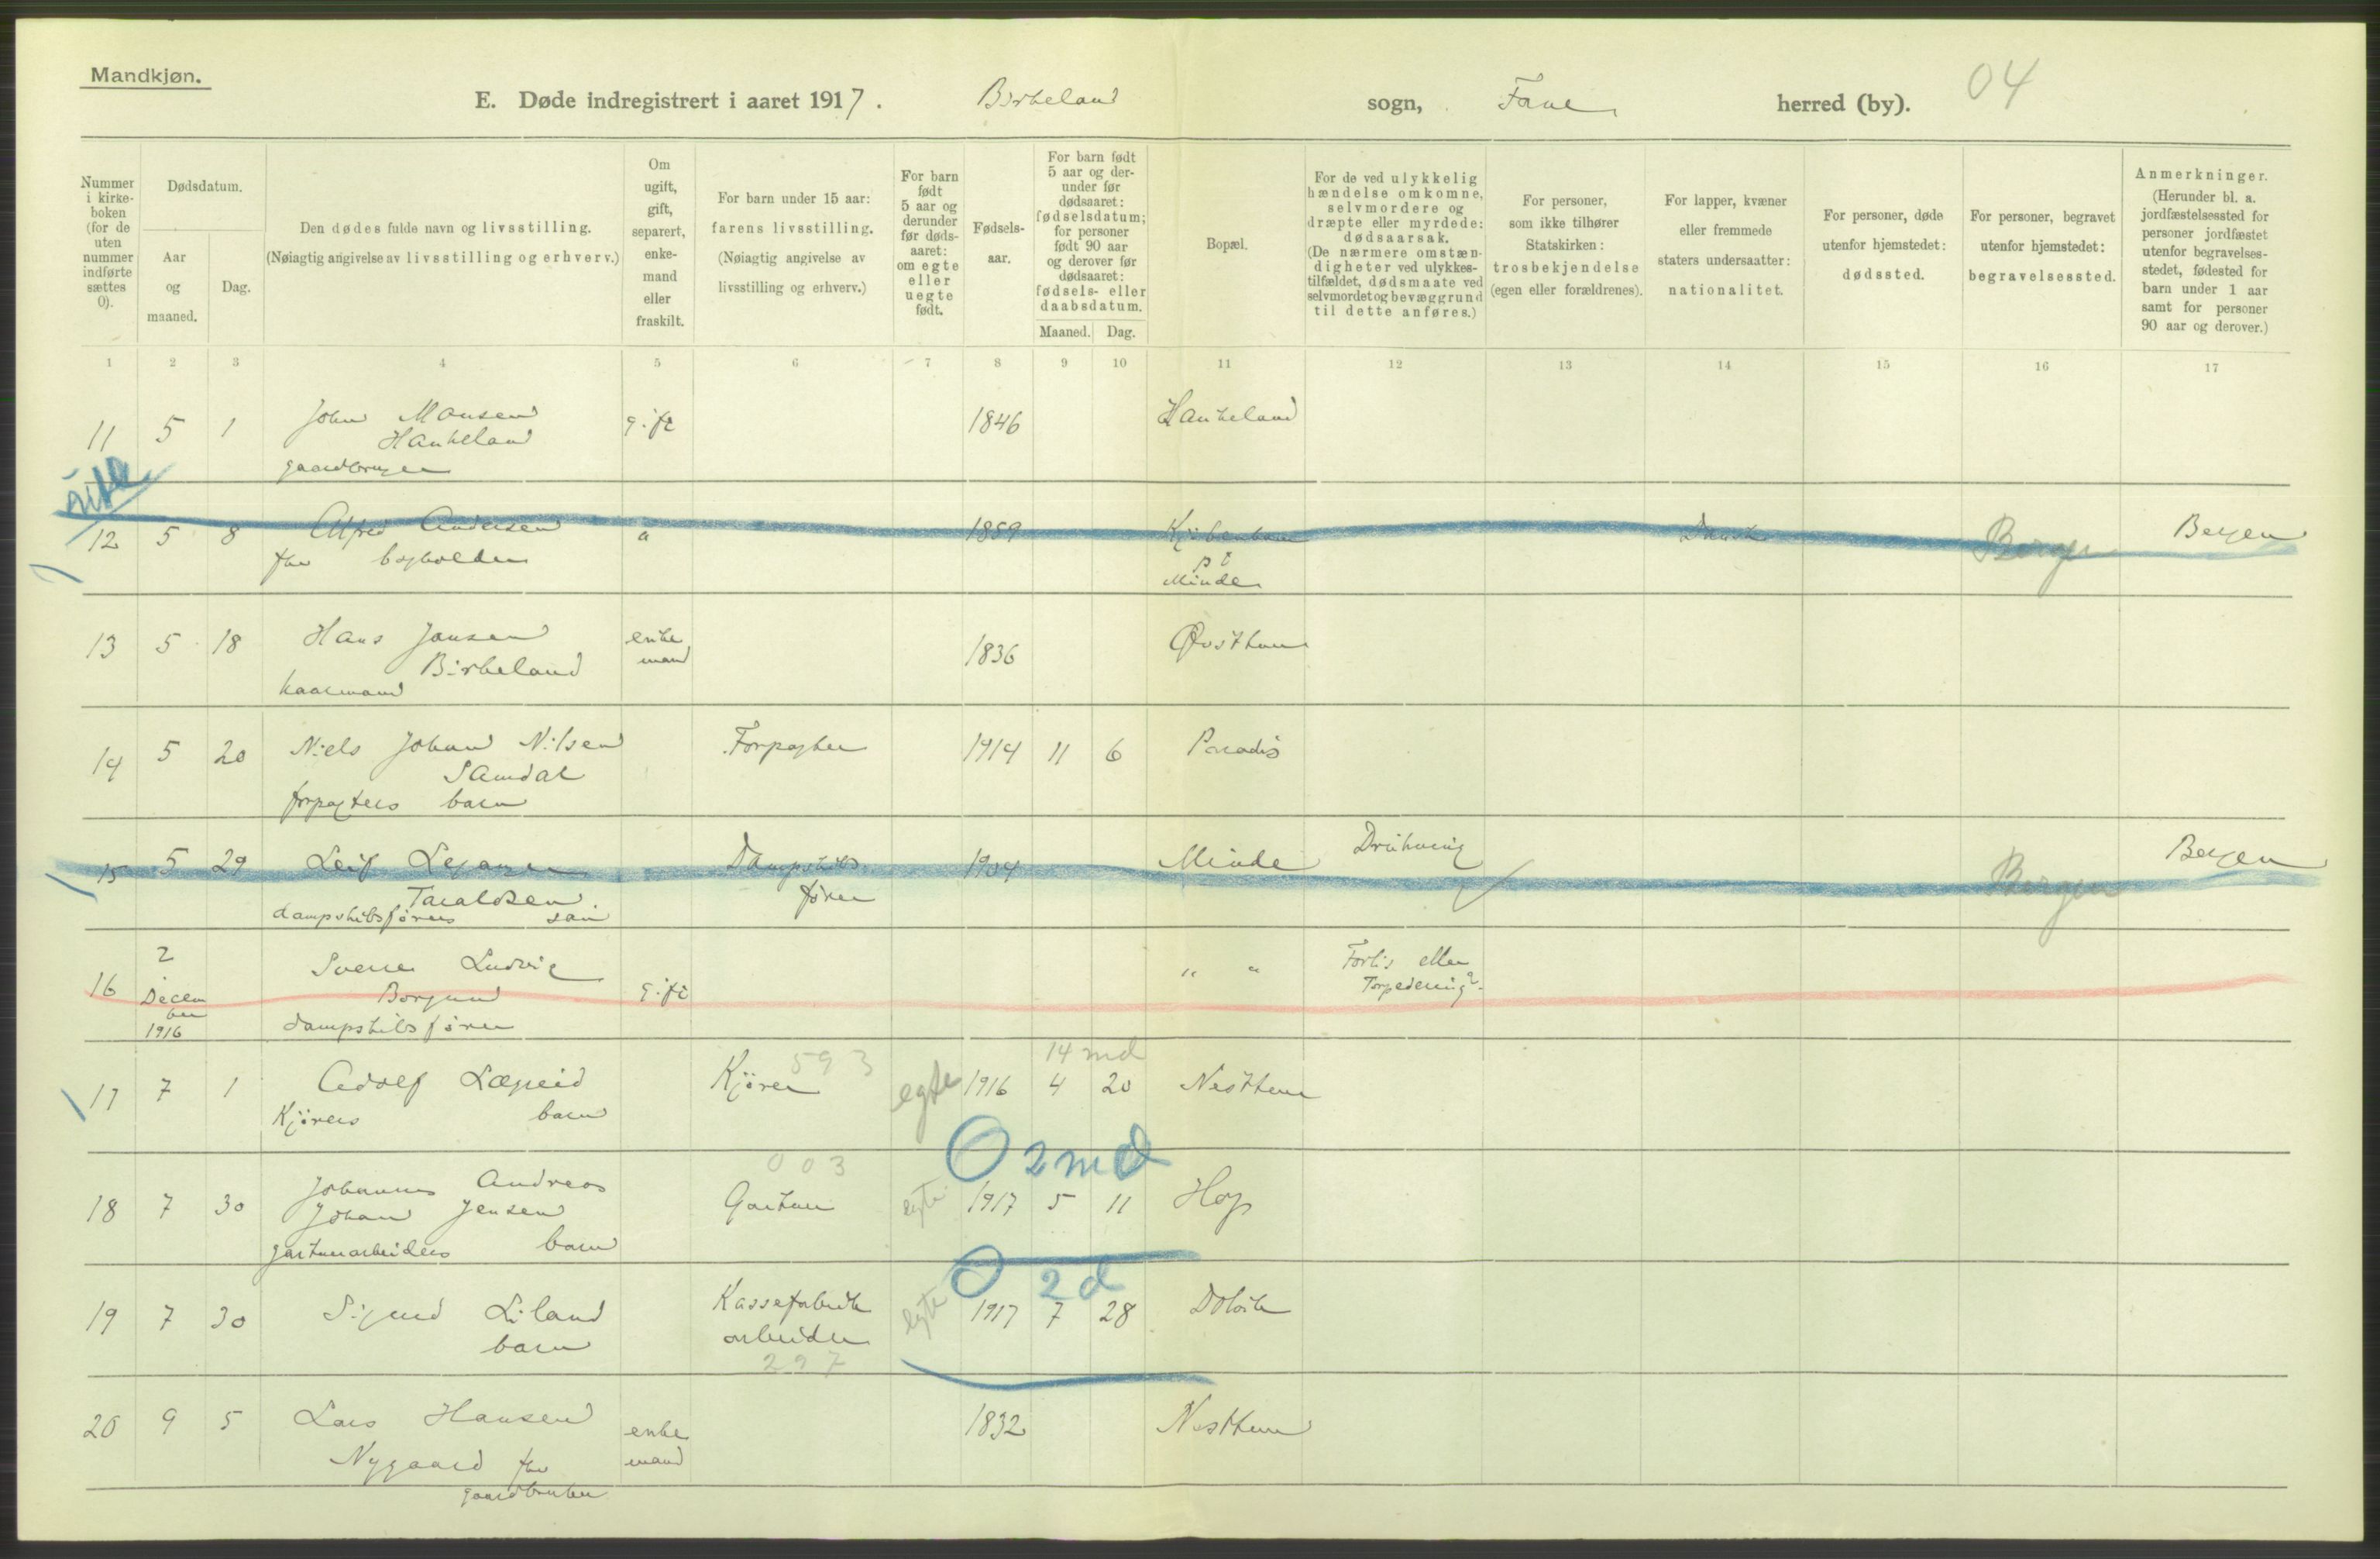 Mandkjøn.
E. Døde indregistrert i aaret 1917. Birkeland sogn, Fane herred (by). 04
Nummer i kirke-boken (for de uten nummer indførte sættes 0).
Dødsdatum.
Aar og maaned.
Dag.
Den dødes fulde navn og livsstilling.
(Nøiagtig angivelse av livsstilling og erhverv.)
Om ugift, gift, separert, enke-mand eller fraskilt.
For barn under 15 aar:
farens livsstilling.
(Nøiagtig angivelse av livsstilling og erhverv.)
For barn født 5 aar og derunder før døds-aaret: om egte eller uegte født.
Fødsels-aar.
For barn født 5 aar og der-under før dødsaaret: fødselsdatum; for personer født 90 aar og derover før dødsaaret: fødsels- eller daabsdatum.
Maaned. Dag.
Bopæl.
For de ved ulykkelig hændelse omkomne, selvmordere og dræpte eller myrdede: dødsaarsak.
(De nærmere omstæn-digheter ved ulykkes-tilfældet, dødsmaate ved selvmordet og bevæggrund til dette anføres.)
For personer, som ikke tilhører Statskirken: trosbekjendelse (egen eller forældrenes).
For lapper, kvæner eller fremmede staters undersaatter: nationalitet.
For personer, døde utenfor hjemstedet: dødssted.
For personer, begravet utenfor hjemstedet: begravelsessted.
Anmerkninger.
(Herunder bl. a. jordfæstelsessted for personer jordfæstet utenfor begravelses-stedet, fødested for barn under 1 aar samt for personer 90 aar og derover.)
1 2 3 4 5 6 7 8 9 10 11 12 13 14 15 16 17
11 5 1 John Monsen gift 1846 Haukeland
Haukeland
gaardbruger
12 5 8 Alfred Andersen " 1859 Kjøbenhavn Dansk Bergen Bergen
fhv bogholder
pt
Minde
13 5 18 Hans Jonsen enke 1836 Øvsttun
Birkeland mand
kaarmand
14 5 20 Niels Johan Nilsen Forpagter 1914 11 6 Paradis
Samdal
forpagters barn
15 5 29 Leif Dampskibs 1904 Minde Drukning Bergen Bergen
Taraldsen fører
dampskibsførers søn
16 2 Sverre Ludvig gift " " Forlis eller
Decem Borgund Torpedering?
ber
1916 dampskibsfører
14 md
17 7 1 Adolf Lægreid Kjører 593 egte 1916 4 20 Nesttun
Kjørers barn
0 2 md
003
18 7 30 Johannes Andreas Gartner egte 1917 5 11 Hop
Johan Jensen
gartnerarbeiders barn
0 2 d
19 7 30 Sigurd Liland Kassefabrik egte 1917 7 28 Dolvik
barn arbeider
297
20 9 5 Lars Hansen enke 1832 Nesttun
Nygaard fhv mand
gaardbruker